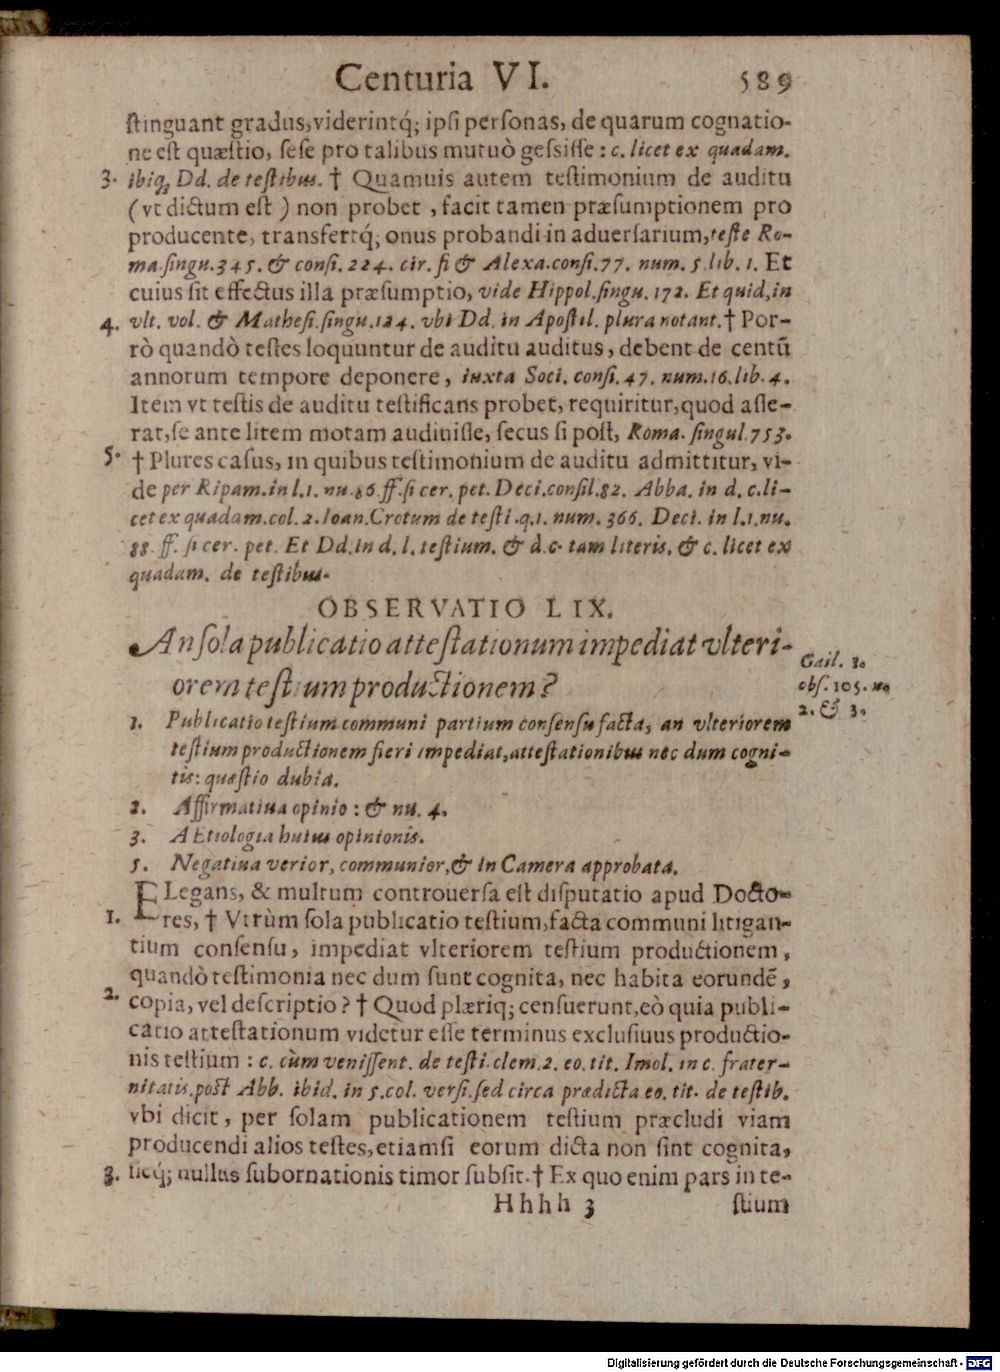 Centuria VI. 589
stinguant gradus, viderintq́; ipsi personas, de quarum cognatio-
ne est quæstio, sese pro talibus mutuò gessisse : c. licet ex quadam.
3. ibiq; Dd. de testibus. † Quamuis autem testimonium de auditu
(vt dictum est) non probet, facit tamen præsumptionem pro
producente, transfertq́; onus probandi in aduersarium, teste Ro-
ma. singu. 345. & consi. 224. cir. fi & Alexa. consi. 77. num. 5. lib. 1. Et
cuius sit effectus illa præsumptio, vide Hippol. singu. 172. Et quid, in
4. vlt. vol. & Mathesi. singu. 124. vbi Dd. in Apostil. plura notant. † Por-
rò quandò testes loquuntur de auditu auditus, debent de centũ
annorum tempore deponere, iuxta Soci. consi. 47. num. 16. lib. 4.
Item vt testis de auditu testificans probet, requiritur, quod asse-
rat, se ante litem motam audiuisse, secus si post, Roma. singul. 753.
5. † Plures casus, in quibus testimonium de auditu admittitur, vi-
de per Ripam. in l. 1. nu. 86. ff. si cer. pet. Deci. consil. 82. Abba. in d. c. li-
cet ex quadam. col. 2. Ioan. Crotum de testi. q. 1. num. 366. Deci. in l. 1. nu.
88. ff. si cer. pet. Et Dd. in d. l. testium. & d. c. tam literis. & c. licet ex
quadam. de testibus.
OBSERVATIO LIX.
An sola publicatio attestationum impediat vlteri-
orem testium productionem?
Gail. 1.
obs. 105. no
2. & 3.
1. Publicatio testium communi partium consensu facta, an vlteriorem
testium productionem fieri impediat, attestationibus nec dum cogni-
tis: quæstio dubia.
2. Affirmatiua opinio : & nu. 4.
3. AEtiologia huius opinionis.
5. Negatiua verior, communior, & in Camera approbata.
ELegans, & multum controuersa est disputatio apud Docto-
1. res, † Vtrùm sola publicatio testium, facta communi litigan-
tium consensu, impediat vlteriorem testium productionem,
quandò testimonia nec dum sunt cognita, nec habita eorundē,
2. copia, vel descriptio? † Quod plæriq; censuerunt, eò quia publi-
catio attestationum videtur esse terminus exclusiuus productio-
nis testium : c. cùm venissent. de testi. clem. 2. eo. tit. Imol. in c. frater-
nitatis. post Abb. ibid. in 5. col. versi. sed circa prædicta eo. tit. de testib.
vbi dicit, per solam publicationem testium præcludi viam
producendi alios testes, etiamsi eorum dicta non sint cognita,
3. sicq́; nullus subornationis timor subsit. † Ex quo enim pars in te-
Hhhh 3 stium
Digitalisierung gefördert durch die Deutsche Forschungsgemeinschaft - DFG